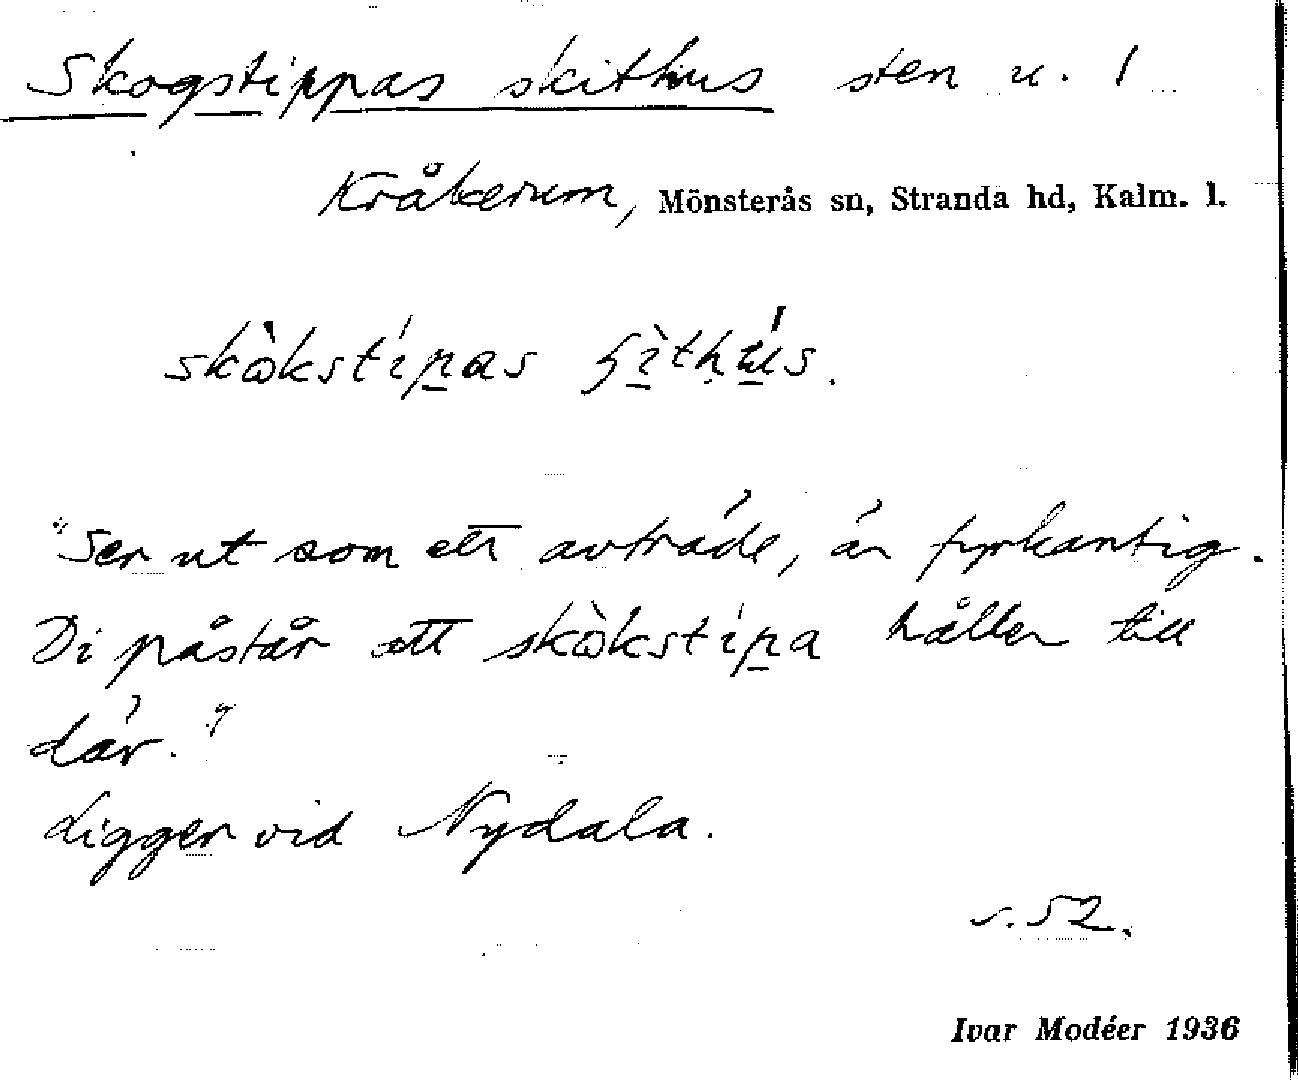 Skogstippas skithus sten u. 1
Kråkerum, Mönsterås sn, Stranda hd, Kalm. l.
skòkstípas
"Ser ut som ett avträde, är fyrkantig.
Di påstår att skòkstípa håller till
där."
Ligger vid Nydala.
s. 52.
Ivar Modéer 1936